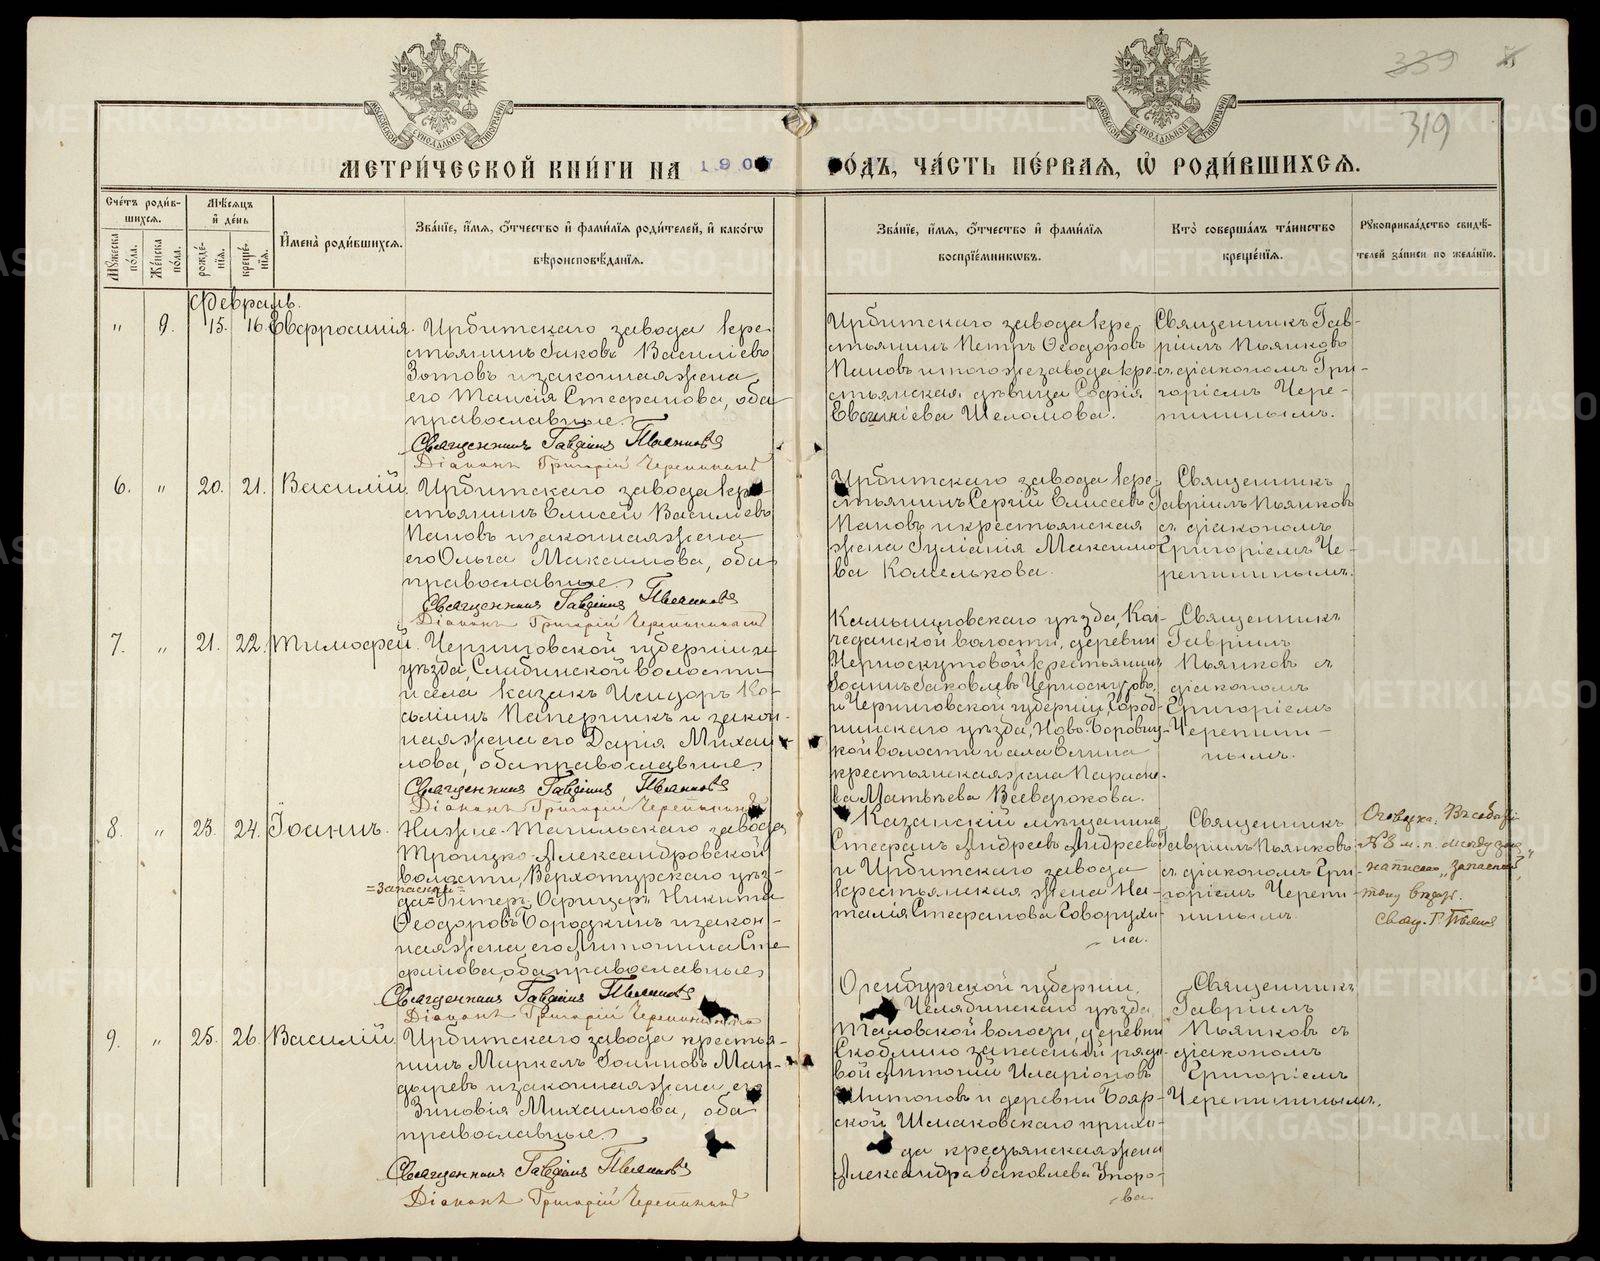 339
319
МОСКОВСКОЙ СѴНОДАЛЬНОЙ ТИПОГРАФІИ
МОСКОВСКОЙ СѴНОДАЛЬНОЙ ТИПОГРАФІИ
МЕТРИ́ЧЕСКОЙ КНИ́ГИ НА 190 ГО́ДЪ, ЧА́СТЬ ПЕ́РВАѦ, Ѡ҆ РОДИ́ВШИХСѦ.
Сче́тъ роди́в-
шихсѧ.
Мꙋ́жеска по́ла.
Же́нска по́ла.
Мѣ́сѧцъ
и҆ де́нь
рожде́-
нїѧ.
креще́-
нїѧ.
И҆мена̀ роди́вшихсѧ.
Зва́нїе, и҆́мѧ, ѻ҆́тчество и҆ фами́лїѧ роди́телей, и҆ како́гѡ
вѣроисповѣ́данїѧ.
Зва́нїе, и҆́мѧ, ѻ҆́тчество и҆ фами́лїѧ
воспрїе́мникѡвъ.
Кто̀ соверша́лъ та́инство
креще́нїѧ.
Рꙋкоприкла́дство свидѣ́-
телей за́писи по жела́нїю.
Февраль.
" 9. 15. 16. Евфросинія.
Ирбитскаго завода кре-
стьянинъ Іаковъ Василіевъ
Зотовъ и законная жена
его Таисія Стефанова, оба
православные.
Священникъ Гавріилъ Пьянковъ
Діаконъ Григорій Черепининъ
Ирбитскаго завода кре-
стьянинъ Петръ Ѳеодоровъ
Пановъ и того же завода кре-
стьянская дѣвица Софія
Евгеніева Шеломова.
Священникъ Гав-
ріилъ Пьянковъ
съ діакономъ Гри-
горіемъ Чере-
пининымъ.
6. " 20. 21. Василій.
Ирбитскаго завода кре-
стьянинъ Елисей Василіевъ
Пановъ и законная жена
его Ольга Максимова, оба
православные.
Священникъ Гавріилъ Пьянковъ
Діаконъ Григорій Черепининъ
Ирбитскаго завода кре-
стьянинъ Сергій Елисеевъ
Пановъ и крестьянская
жена Іуліанія Максимо-
ва Комелькова.
Священникъ
Гавріилъ Пьянковъ
съ діакономъ
Григоріемъ Че-
репининымъ.
7. " 21. 22. Тимофей.
Черниговской губерніи и
уѣзда, Слабинской волости
и села казакъ Исидоръ Ко-
сьминъ Паперникъ и закон-
ная жена его Дарія Михаи-
лова, оба православные.
Священникъ Гавріилъ Пьянковъ
Діаконъ Григорій Черепининъ
Камышловскаго уѣзда, Кол-
чеданской волости, деревни
Черноскутовой крестьянинъ
Іоаннъ Іаковлевъ Черноскутовъ
и Черниговской губерніи, Город-
нинскаго уѣзда, Ново-Боровиц-
кой волости и
крестьянская жена Параске-
ва Матвѣева
Священникъ
Гавріилъ
Пьянковъ съ
діакономъ
Григоріемъ
Черепини-
нымъ.
8. " 23. 24. Іоаннъ.
Нижне-Тагильскаго завода,
Троицко-Александровской
волости, Верхотурскаго уѣз-
=запасный=
да= Унтеръ-Офицеръ Никита
Ѳеодоровъ Бородкинъ и закон-
ная жена его Антонина Сте-
фанова, оба православные.
Священникъ Гавріилъ Пьянковъ
Діаконъ Григорій Черепининъ
Казанскій мѣщанинъ
Стефанъ Андреевъ Андреевъ
и Ирбитскаго завода
крестьянская жена На-
талія Стефанова Говорухи-
на.
Священникъ
Гавріилъ Пьянковъ
съ діакономъ Гри-
горіемъ Черепи-
нинымъ.
Оговорка:
№8 м. п. между
написано „запасный“,
тому вѣрить.
Свящ. Г. Пьянк
9. " 25. 26. Василій.
Ирбитскаго завода крестья-
нинъ Маркелъ Іоанновъ Ман-
дыревъ и законная жена его
Зиновія Михаилова, оба
православные.
Священникъ Гавріилъ Пьянковъ
Діаконъ Григорій Черепининъ
Оренбургской губерніи,
Челябинскаго уѣзда,
волости, деревни
Скоблино запасный рядо-
вой Антоній Иларіоновъ
Антоновъ и деревни Бояр-
ской Шмаковскаго прихо-
да крестьянская жена
Александра Іаковлева Упоро-
ва.
Священникъ
Гавріилъ
Пьянковъ съ
діакономъ
Григоріемъ
Черепининымъ.
METRIKI.GASO-URAL.RU